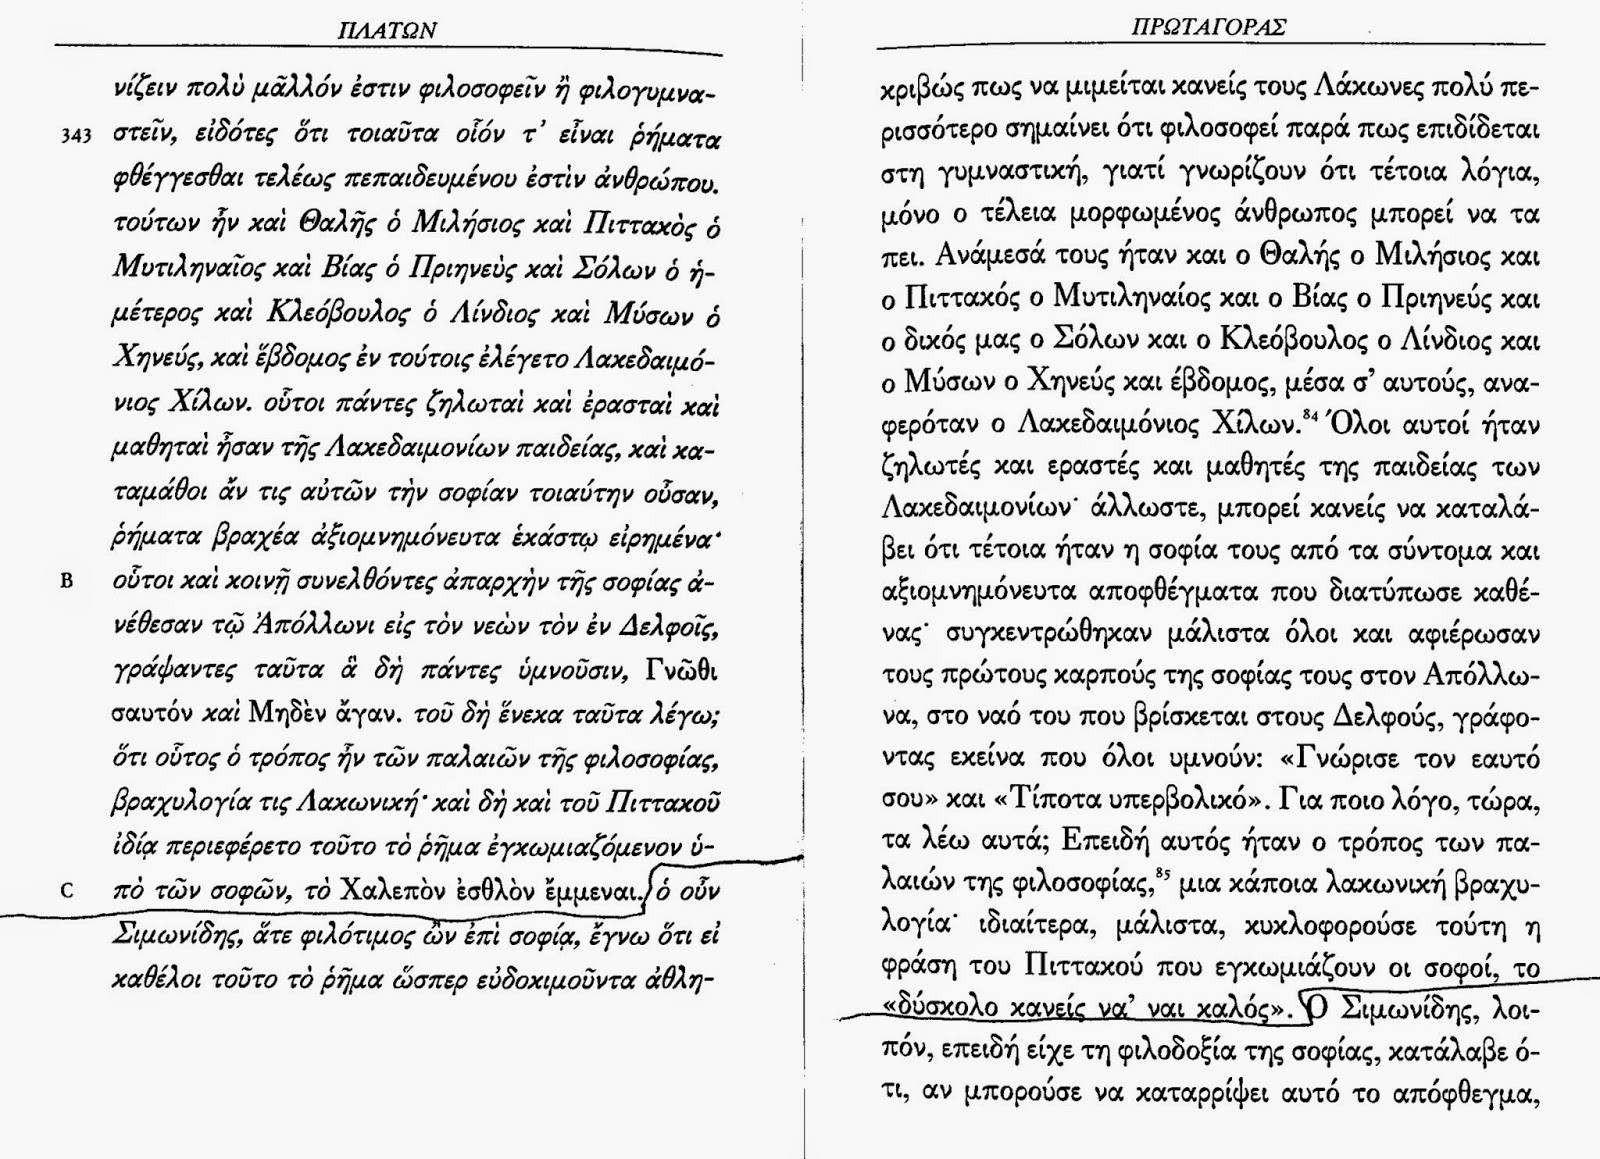 ΠΛΑΤΩΝ
νίζειν πολὺ μᾶλλόν ἐστιν φιλοσοφεῖν ἢ φιλογυμνα-
343 στεῖν, εἰδότες ὅτι τοιαῦτα οἷόν τ’ εἶναι ῥήματα
φθέγγεσθαι τελέως πεπαιδευμένου ἐστὶν ἀνθρώπου.
τούτων ἦν καὶ Θαλῆς ὁ Μιλήσιος καὶ Πιττακὸς ὁ
Μυτιληναῖος καὶ Βίας ὁ Πριηνεὺς καὶ Σόλων ὁ ἡ-
μέτερος καὶ Κλεόβουλος ὁ Λίνδιος καὶ Μύσων ὁ
Χηνεύς, καὶ ἕβδομος ἐν τούτοις ἐλέγετο Λακεδαιμό-
νιος Χίλων. οὗτοι πάντες ζηλωταὶ καὶ ἐρασταὶ καὶ
μαθηταὶ ἦσαν τῆς Λακεδαιμονίων παιδείας, καὶ κα-
ταμάθοι ἄν τις αὐτῶν τὴν σοφίαν τοιαύτην οὖσαν,
ῥήματα βραχέα ἀξιομνημόνευτα ἑκάστῳ εἰρημένα·
B οὗτοι καὶ κοινῇ συνελθόντες ἀπαρχὴν τῆς σοφίας ἀ-
νέθεσαν τῷ Ἀπόλλωνι εἰς τὸν νεὼν τὸν ἐν Δελφοῖς,
γράψαντες ταῦτα ἃ δὴ πάντες ὑμνοῦσιν, Γνῶθι
σαυτόν καὶ Μηδὲν ἄγαν. τοῦ δὴ ἕνεκα ταῦτα λέγω;
ὅτι οὗτος ὁ τρόπος ἦν τῶν παλαιῶν τῆς φιλοσοφίας,
βραχυλογία τις Λακωνική· καὶ δὴ καὶ τοῦ Πιττακοῦ
ἰδίᾳ περιεφέρετο τοῦτο τὸ ῥῆμα ἐγκωμιαζόμενον ὑ-
C πὸ τῶν σοφῶν, τὸ Χαλεπὸν ἐσθλὸν ἔμμεναι. ὁ οὖν
Σιμωνίδης, ἅτε φιλότιμος ὢν ἐπὶ σοφίᾳ, ἔγνω ὅτι εἰ
καθέλοι τοῦτο τὸ ῥῆμα ὥσπερ εὐδοκιμοῦντα ἀθλη-
ΠΡΩΤΑΓΟΡΑΣ
κριβώς πως να μιμείται κανείς τους Λάκωνες πολύ πε-
ρισσότερο σημαίνει ότι φιλοσοφεί παρά πως επιδίδεται
στη γυμναστική, γιατί γνωρίζουν ότι τέτοια λόγια,
μόνο ο τέλεια μορφωμένος άνθρωπος μπορεί να τα
πει. Ανάμεσά τους ήταν και ο Θαλής ο Μιλήσιος και
ο Πιττακός ο Μυτιληναίος και ο Βίας ο Πριηνεύς και
ο δικός μας ο Σόλων και ο Κλεόβουλος ο Λίνδιος και
ο Μύσων ο Χηνεύς και έβδομος, μέσα σ’ αυτούς, ανα-
φερόταν ο Λακεδαιμόνιος Χίλων.⁸⁴ Όλοι αυτοί ήταν
ζηλωτές και εραστές και μαθητές της παιδείας των
Λακεδαιμονίων· άλλωστε, μπορεί κανείς να καταλά-
βει ότι τέτοια ήταν η σοφία τους από τα σύντομα και
αξιομνημόνευτα αποφθέγματα που διατύπωσε καθέ-
νας· συγκεντρώθηκαν μάλιστα όλοι και αφιέρωσαν
τους πρώτους καρπούς της σοφίας τους στον Απόλλω-
να, στο ναό του που βρίσκεται στους Δελφούς, γράφο-
ντας εκείνα που όλοι υμνούν: «Γνώρισε τον εαυτό
σου» και «Τίποτα υπερβολικό». Για ποιο λόγο, τώρα,
τα λέω αυτά; Επειδή αυτός ήταν ο τρόπος των πα-
λαιών της φιλοσοφίας,⁸⁵ μια κάποια λακωνική βραχυ-
λογία· ιδιαίτερα, μάλιστα, κυκλοφορούσε τούτη η
φράση του Πιττακού που εγκωμιάζουν οι σοφοί, το
«δύσκολο κανείς να’ ναι καλός». Ο Σιμωνίδης, λοι-
πόν, επειδή είχε τη φιλοδοξία της σοφίας, κατάλαβε ό-
τι, αν μπορούσε να καταρρίψει αυτό το απόφθεγμα,